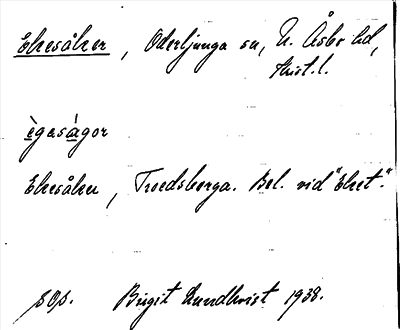 Ekesåker, Oderljunga sn, N. Åsbo hd,
Krist. l.
ègasàgor
Ekesåker, Troedsberga. Bel. vid "Eket".
sop. Birgit Lundkvist 1938.